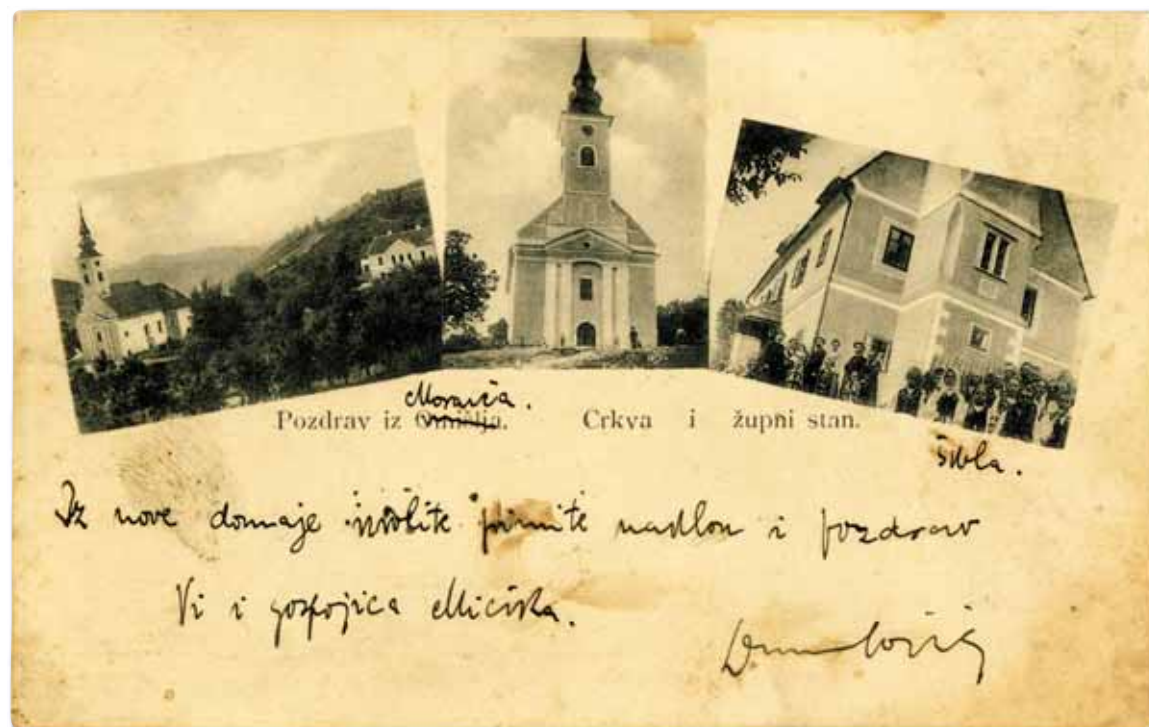 Moravča.
Pozdrav iz Omišlja. Crkva i župni stan.
škola.
Iz nove domaje izvolite primite naklon i pozdrav
Vi i gospojica Micika.